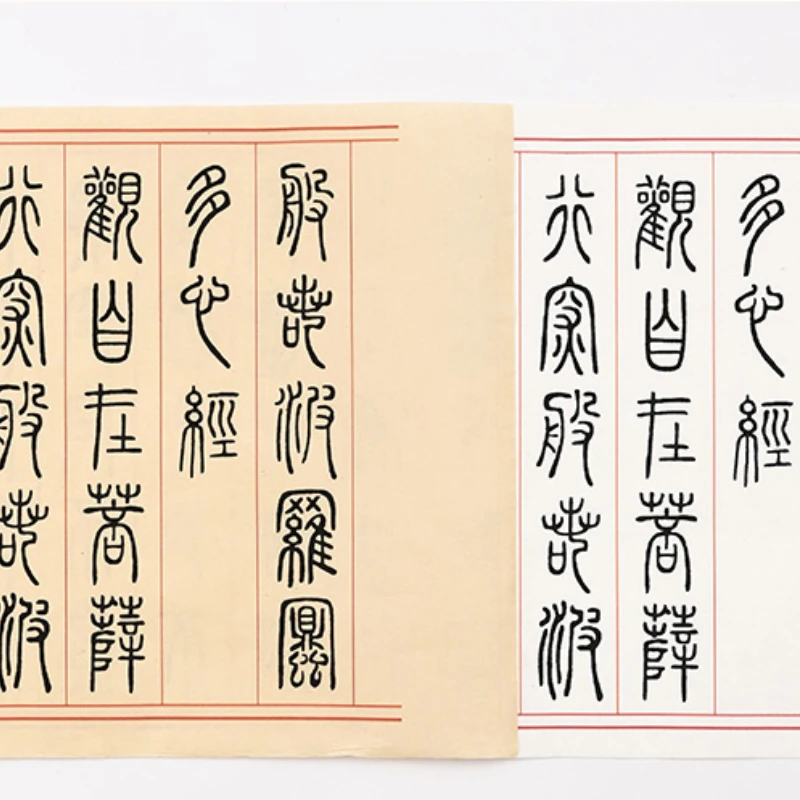 多心經
觀自在菩薩
行深般若波
般若波羅蜜
多心經
觀自在菩薩
行深般若波